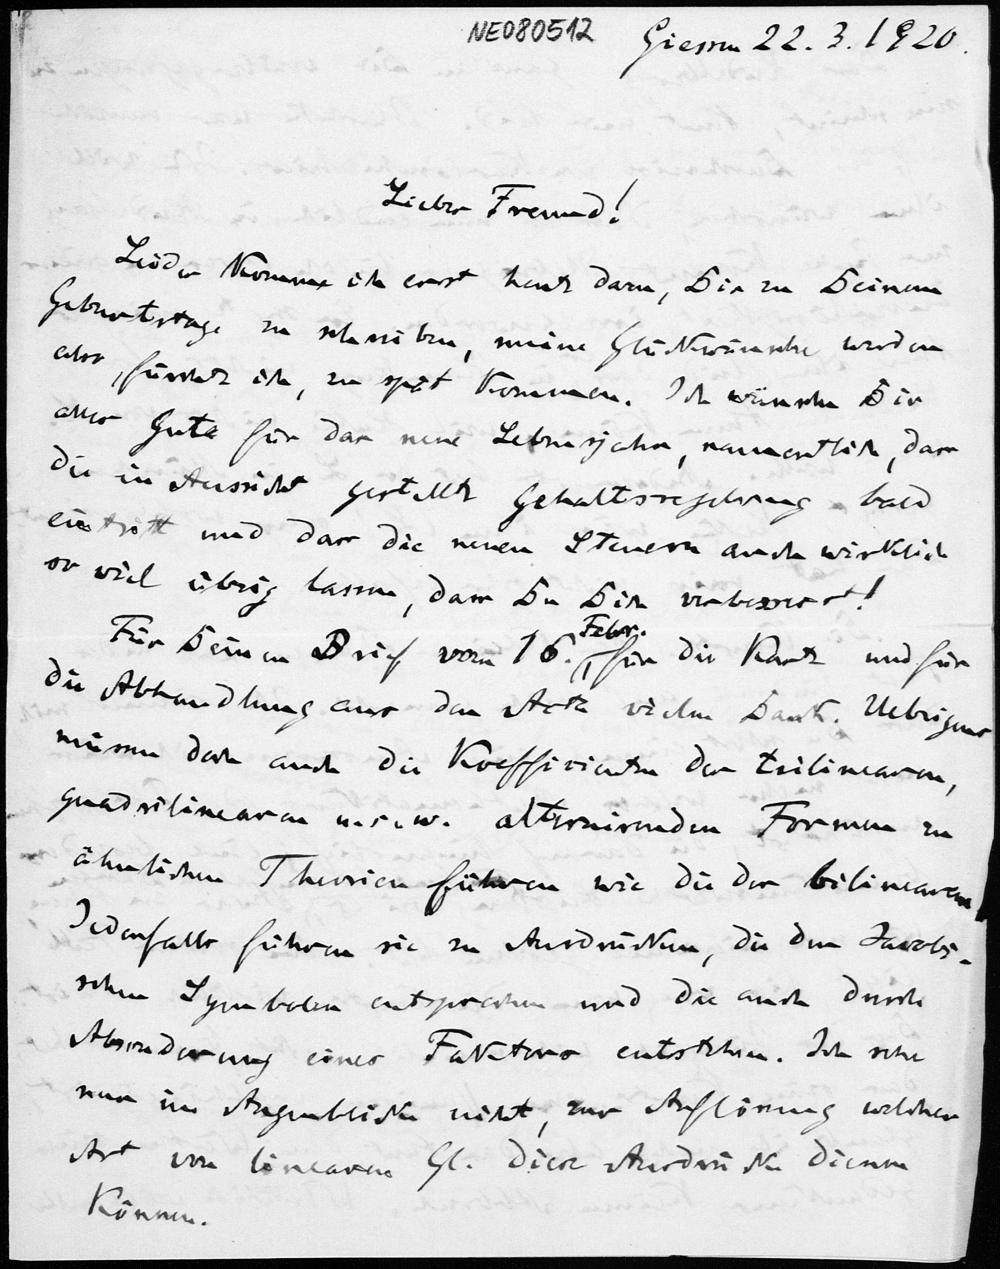 NE080512
Giessen 22.3.1920.
Lieber Freund!
Leider komme ich erst heute dazu, Dir zu Deinem
Geburtstage zu schreiben, meine Glückwünsche werden
also, fürchte ich, zu spät kommen. Ich wünsche Dir
alles Gute für das neue Lebensjahr, namentlich, dass
die in Aussicht gestellte Gehaltsregelung bald
eintritt und dass die neuen Steuern auch wirklich
so viel übrig lassen, dass Du Dich verbesserst!
Für Deinen Brief vom 16. Febr. für die Karte und für
die Abhandlung aus den Acta vielen Dank. Uebrigens
müssen doch auch die Koeffizienten der trilinearen,
quadrilinearen u.s.w. alternirenden Formen zu
ähnlichen Theorien führen wie die der bilinearen
Jedenfalls führen sie zu Ausdrücken, die den Jacobi-
schen Symbolen entsprechen und die auch durch
Absonderung eines Faktors entstehen. Ich sehe
nur im Augenblicke nicht, zur Auflösung welcher
Art von linearen Gl. diese Ausdrücke dienen
können.